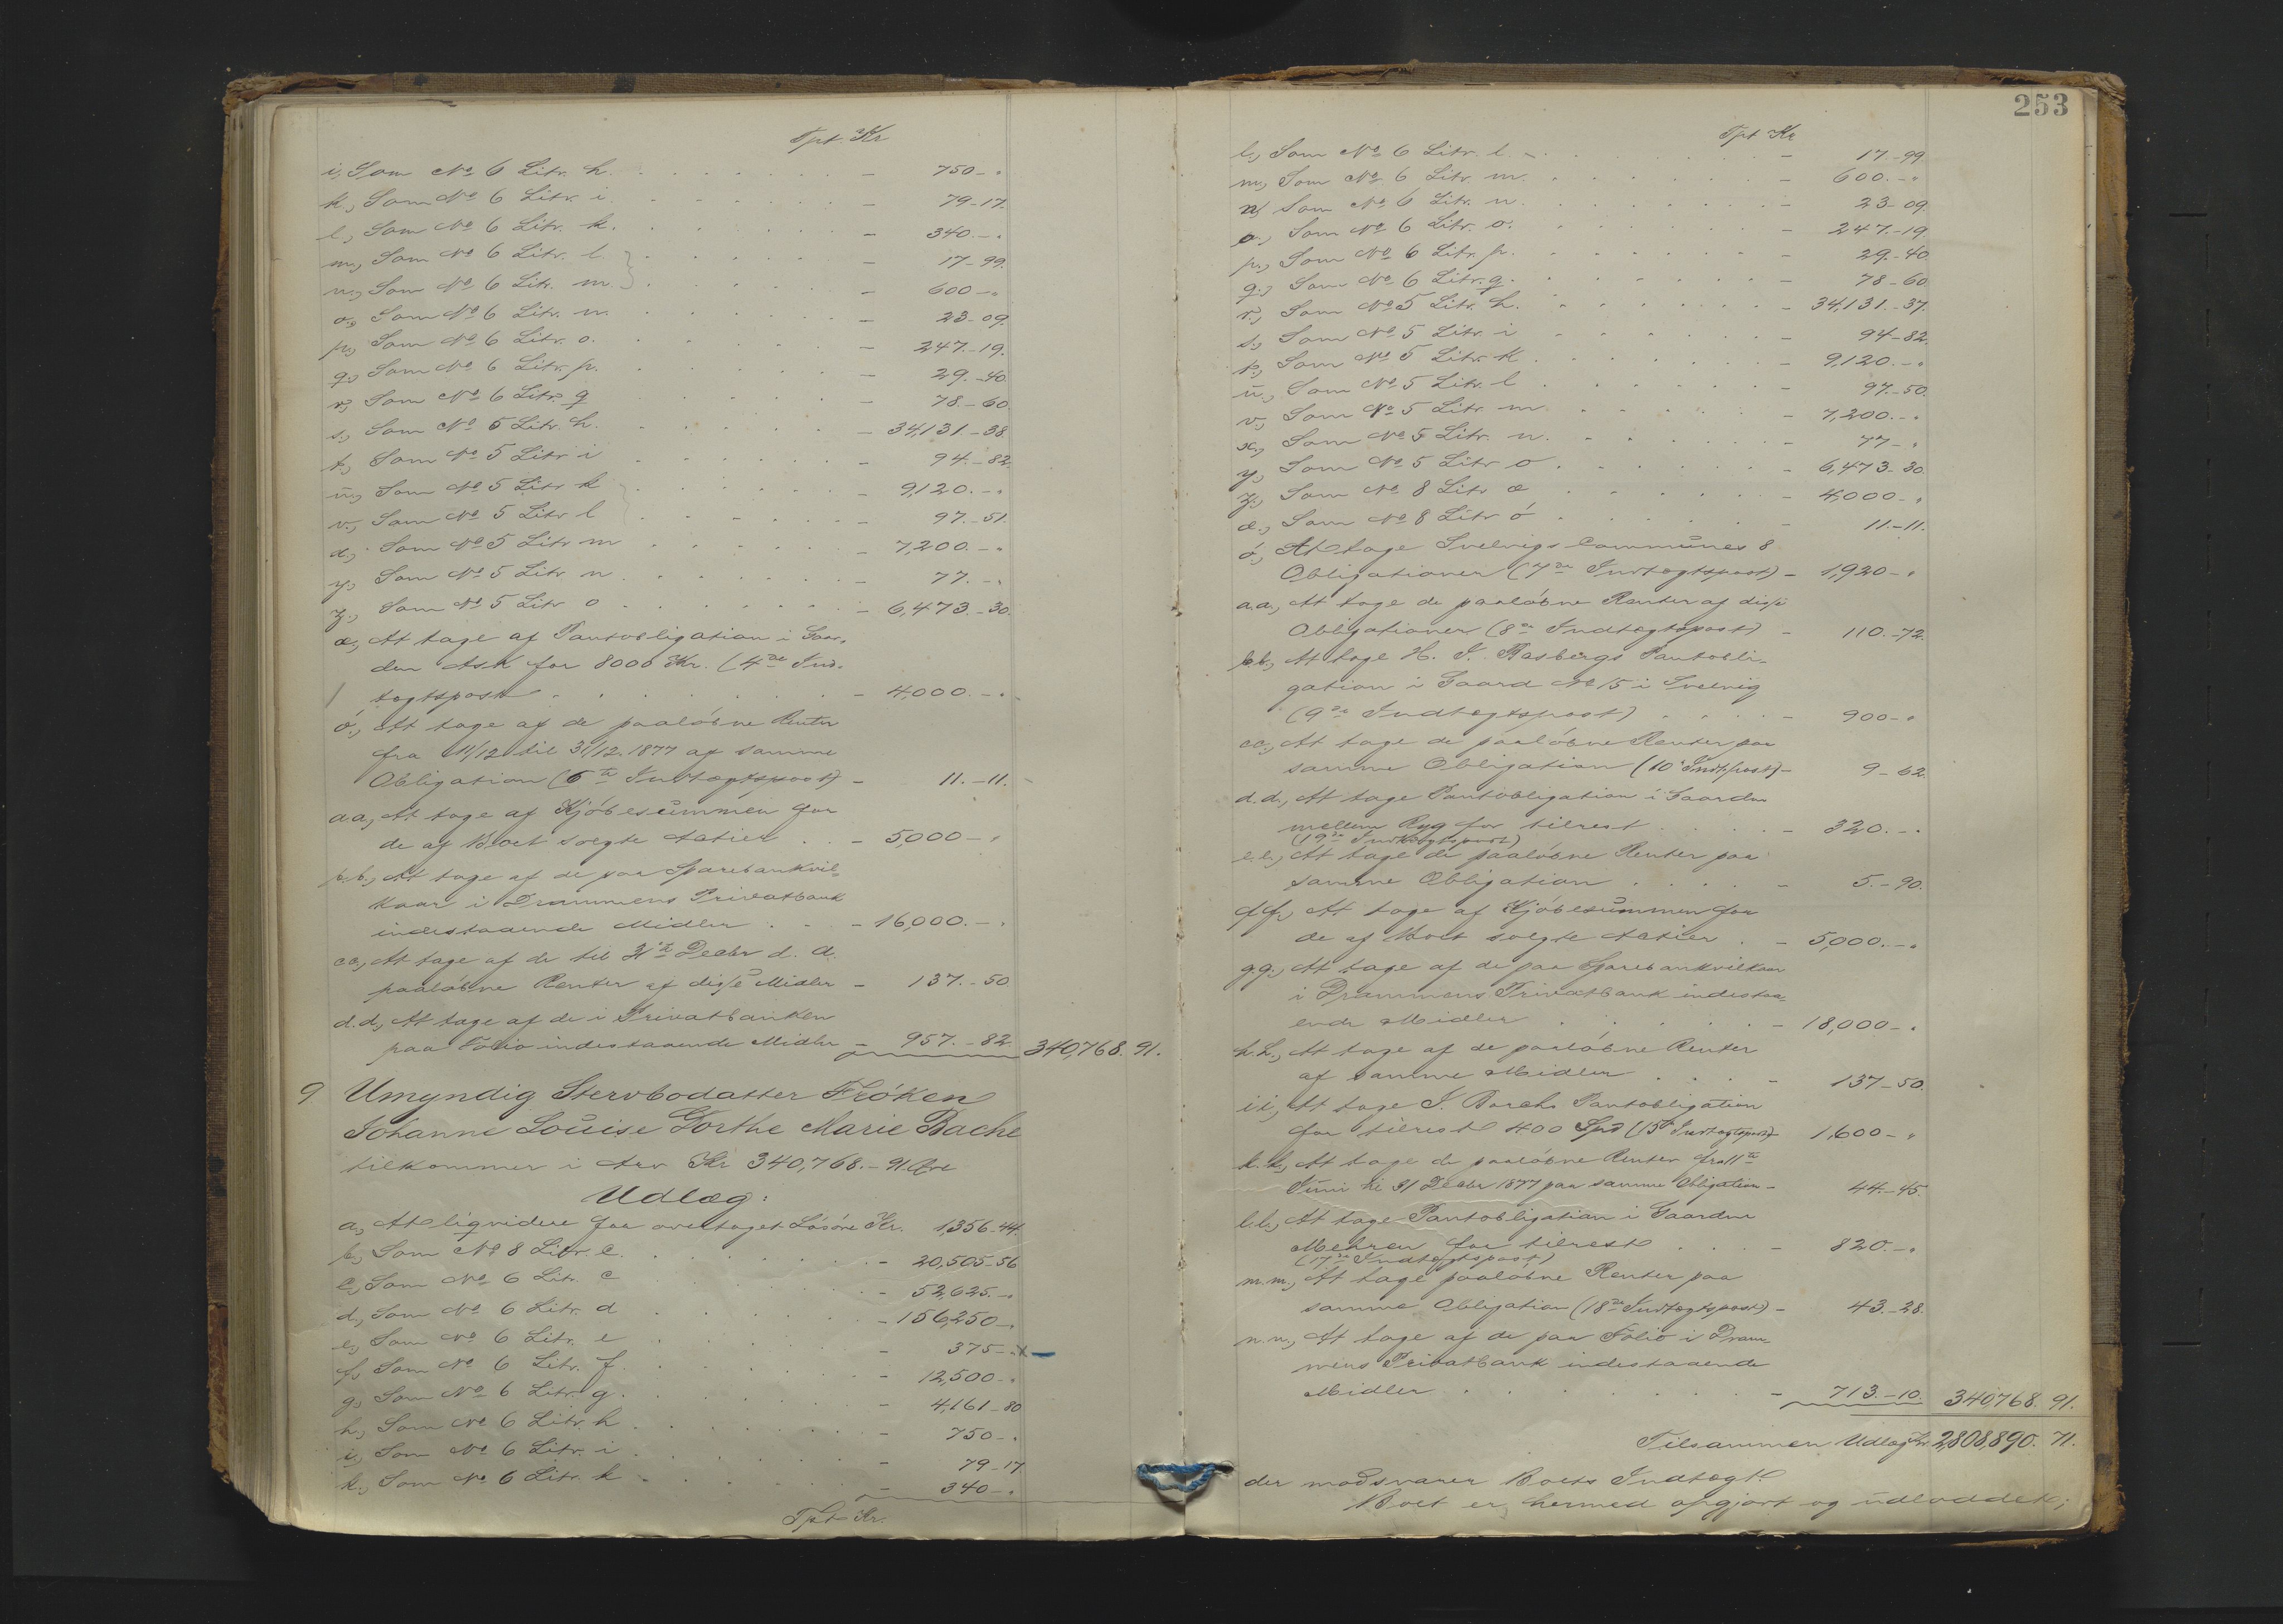 Tpt. Kr
i, Som No 6 Litr. h. - 750 - "
k., Som No 6 Litr. i. - 79 - 17.
l., Som No 6 Litr. k. - 340. - "
m., Som No 6 Litr. l. - 17 - 99.
n., Som No 6 Litr. m. - 600 - "
o., Som No 6 Litr. n. - 23 - 09.
p., Som No 6 Litr. o. - 247. - 19.
q., Som No 6 Litr. p. - 29. - 40.
r., Som No 6 Litr. q - 78. - 60.
s., Som No 5 Litr. h. - 34,131. - 38.
t., Som No 5 Litr. i - 94. - 82.
u., Som No 5 Litr k - 9,120. - "
v., Som No 5 Litr l - 97. - 51.
d., Som No 5 Litr m - 7,200. - "
y., Som No 5 Litr n - 77. - "
z., Som No 5 Litr o - 6,473. - 30.
æ., At tage af Pantobligation i Gaar-
den Ask for 8000 Kr. (4de Ind-
togtspost - 4,000. - "
ó., At tage af de paaløbne Renter
fra 11/12 til 31/12. 1877 af samme
Obligation (6te Indtægtspost) - 11. - 11.
aa., At tage af Kjøbesummen for
de af Boet solgte Actier - 5,000 - "
b.b., At tage af de paa Sparebankvil-
kaar i Drammens Privatbank
indestaaende Midler - 16,000. - "
cc., At tage af de til 31te Decbr d. A.
paaløbne Renter af disse Midler - 137. - 50
d.d., At tage af de i Privatbanken
paa Folio indestaaende Midler - 957. - 82. 340,768. 91.
9 Umyndig Stervbodatter Frøken
Johanne Louise Dorthe Marie Bache
tilkommer i Arv Kr 340,768. - 91 Øre
Udlæg:
a., At liqvidere for overtaget Løsøre Kr. 1,356 - 44.
b., Som No 8 Litr. c. - 20,505 - 56
c., Som No 6 Litr. c - 52,625. - "
d., Som No 6 Litr. d - 156,250 - "
e., Som No 6 Litr. e - 375 - " x
f., Som No 6 Litr. f. - 12,500 - "
g., Som No 6 Litr. g. - 4,161 - 80
h., Som No 6 Litr. h - 750 - "
i., Som No 6 Litr. i - 79 - 17
k., Som No 6 Litr. k - 340 - "
Tpt Kr.
253
Tpt Kr
l., Som No 6 Litr. l - 17 - 99.
m., Som No 6 Litr. m. - 600. - "
n., Som No 6 Litr. n. - 23 - 09.
o., Som No 6 Litr. o. - 247. - 19.
p., Som No 6 Litr. p. - 29. - 40
q., Som No 6 Litr. q. - 78 - 60
r., Som No 5 Litr. h. - 34,131. - 37.
s., Som No 5 Litr. i - 94 - 82.
t., Som No 5 Litr. k - 9,120. - "
u., Som No 5 Litr. l - 97. - 50.
v., Som No 5 Litr m. - 7,200. - "
x., Som No 5 Litr. n. - 77 - "
y., Som No 5 Litr o - 6,473 - 30.
z., Som No 8 Litr æ - 4,000 - "
æ., Som No 8 Litr ó - 11. - 11.
ó., At tage Svelvigs Communes 8
Obligationer (7de Indtægtspost) - 1,920 - "
a.a., At tage de paaløbne Renter af disse
Obligationer (8de Indtægtspost) - 110. - 72.
b.b., At tage H. J. Basbergs Pantobli-
gation i Gaard No 15 i Svelvig
(9de Indtægtspost) - 900 - "
cc., At tage de paaløbne Renter paa
samme Obligation (10de Indt.post) - 9 - 62.
d.d., At tage Pantobligation i Gaarden
mellem Ryg for tilrest - 320. - "
(19de Indtægtspost)
e.e., At tage de paaløbne Renter paa
samme Obligation - 5. - 90.
f.f., At tage af Kjøbesummen for
de af Boet solgte Actier - 5,000. - "
g.g., At tage af de paa Sparebankvilkaar
i Drammens Privatbank indestaa-
ende Midler - 18,000 - "
h.h., At tage af de paaløbne Renter
af samme Midler - 137 - 50.
i.i., At tage J. Borchs Pantobligation
for tilrest 400 Spd (15de Indtægtspost) 1,600 - "
k.k., At tage de paaløbne Renter fra 11te
Juni til 31 Decbr 1877 paa samme Obligation - 44. - 45.
l.l., At tage Pantobligation i Gaarden
Mehren for tilrest - 820. - "
(17de Indtægtspost)
m.m., At tage paaløbne Renter paa
samme Obligation (18de Indtægtspost) - 43. - 28.
n.n., At tage af de paa Folio i Dram-
mens Privatbank indestaaende
Midler - 713. - 10. 340,768. 91.
Tilsammen Udlæg Kr 2,808,890. 71.
der modsvarer Boets Indtægt.
Boet er hermed opgjort og udloddet;